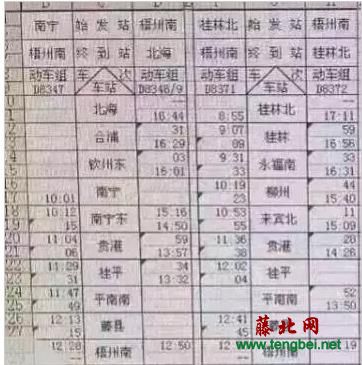 南宁 始发站 梧州南 桂林北 始发站 梧州南
梧州南 终到站 北海 梧州南 终到站 桂林北
动车组 车次 动车组 动车组 车次 动车组
D8347 车站 D8346/9 D8371 车站 D8372
北海 16:44 8:55 桂林北 17:11
合浦 31 9:07 桂林 59
16:29 09 16:56
钦州东 03 9:31 永福南 33
16:01 33 16:31
南宁 10:19 柳州 44
10:01 23 15:40
10:12 南宁东 15:16 10:53 来宾北 11
15 14:50 55 15:09
11:04 贵港 59 11:36 贵港 28
06 13:57 38 14:26
11:29 桂平 34 12:02 桂平
31 13:32 04
11:47 平南南 平南南 52
49 13:50
12:13 藤县 12:41
15 45
12:28 梧州南 12:50 梧州南 19
藤北网
www.tengbei.net